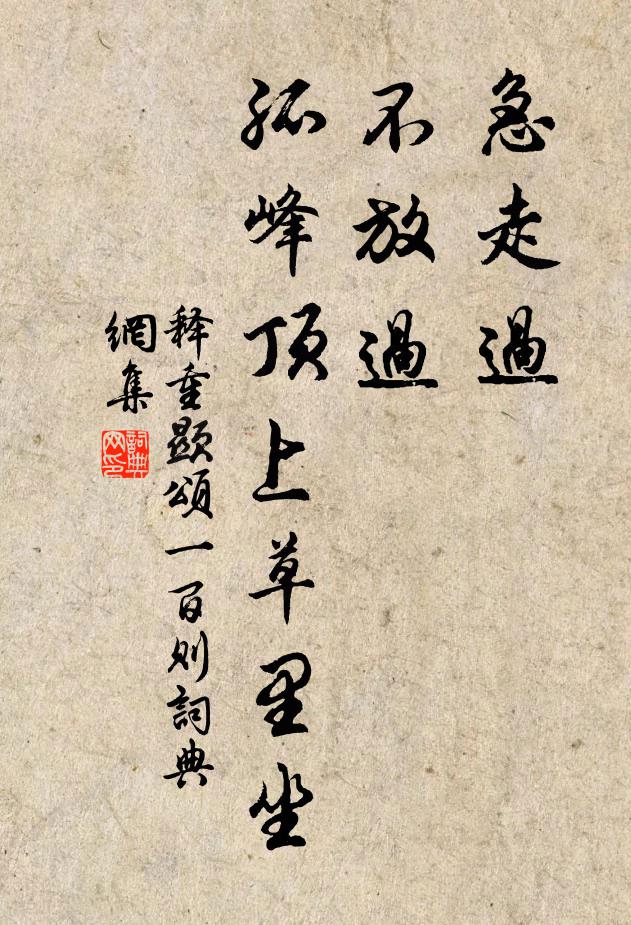 急走過
不放過
孤峰頂上草里坐
释重顯頌一百则詞典
網集
詞典
网印